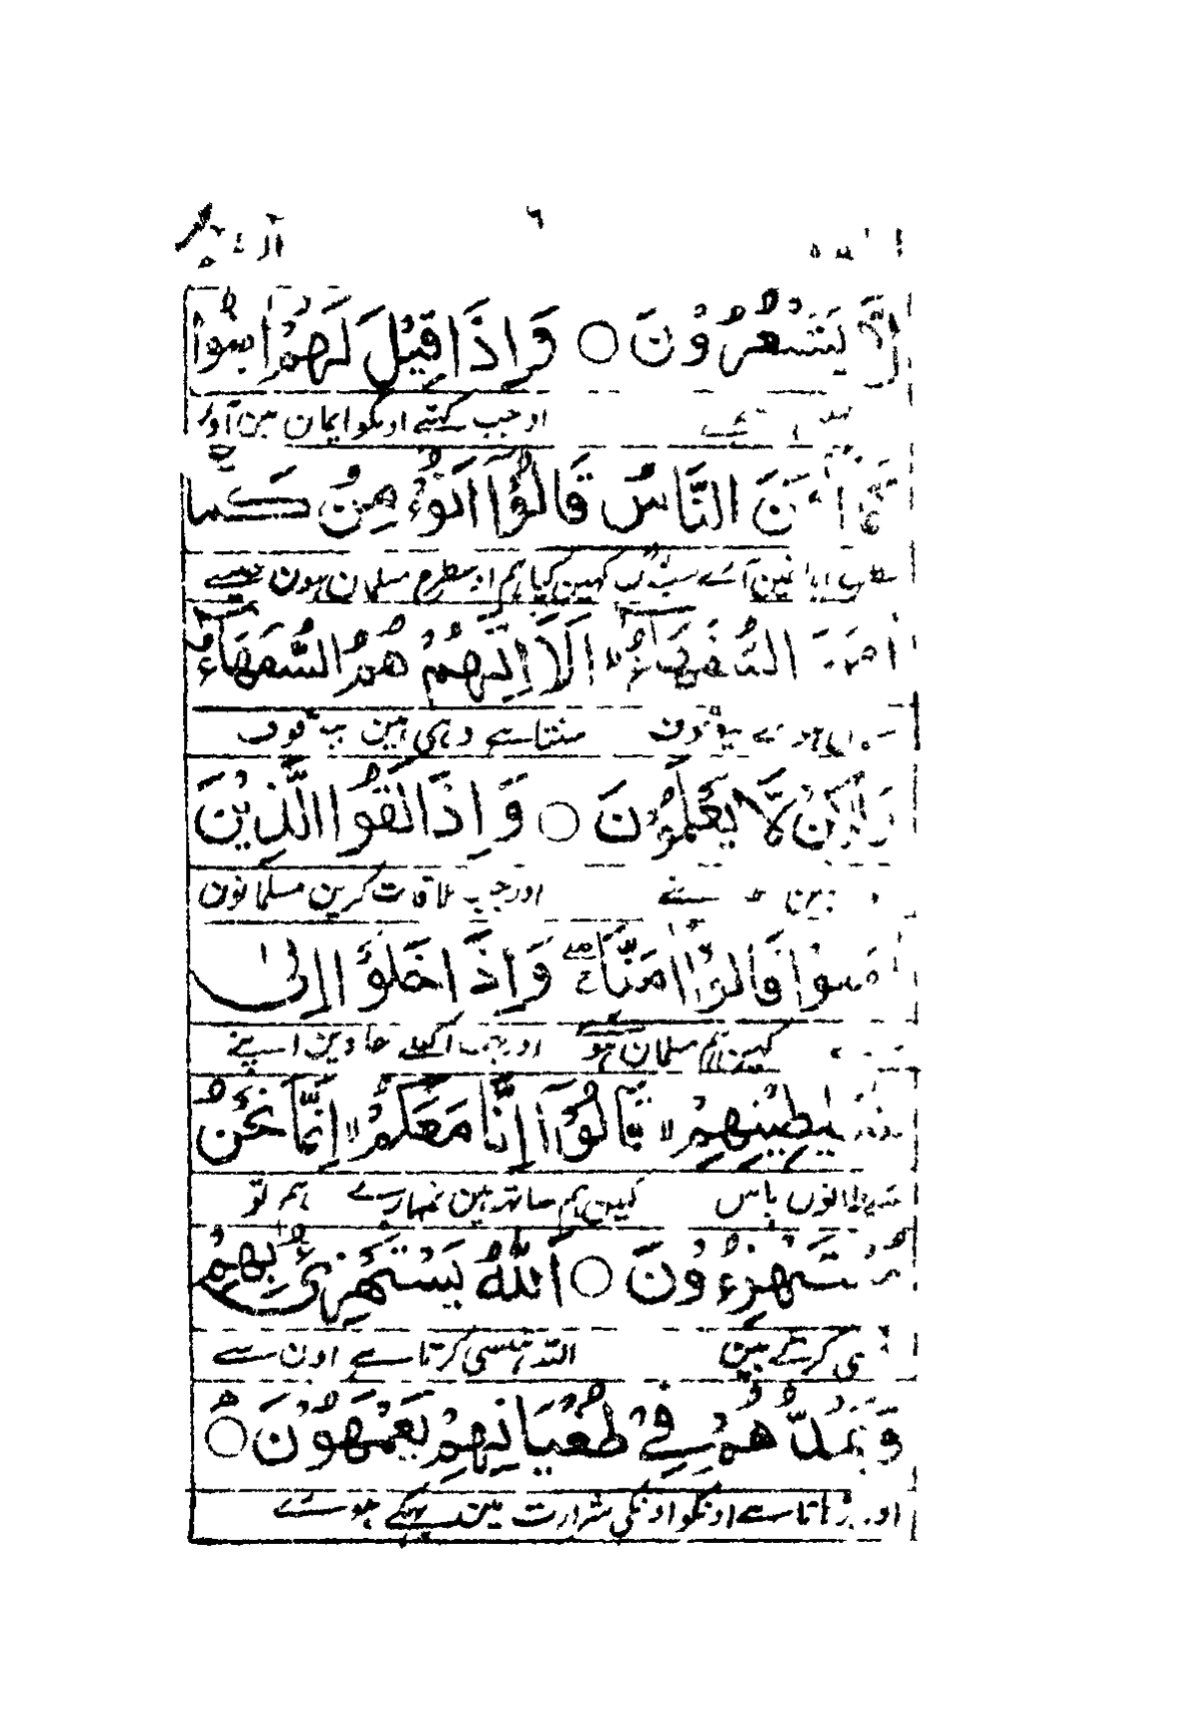 ٦
لَّا يَشْعُرُوْنَ ○ وَاِذَا قِيْلَ لَهُمْ اٰمِنُوْا
اور جب کہئے اونکو ایمان مین آؤ
كَمَآ اٰمَنَ النَّاسُ قَالُوْٓا اَنُؤْمِنُ كَمَآ
آئے سب لوگ کہین کیا ہم اوسطرح مسلمان ہون جیسے
اٰمَنَ السُّفَهَآءُ ؕ اَلَآ اِنَّهُمْ هُمُ السُّفَهَآءُ
بیوقوف سنتا ہے وہی ہین بیوقوف
وَلٰكِنْ لَّا يَعْلَمُوْنَ ○ وَاِذَا لَقُوا الَّذِيْنَ
اور جب ملاقات کرین مسلمانون
اٰمَنُوْا قَالُوْٓا اٰمَنَّا ۚ وَاِذَا خَلَوْا اِلٰى
کہین ہم مسلمان ہوئے اور جب اکیلے جاوین اپنے
شَيٰطِيْنِهِمْ ۙ قَالُوْٓا اِنَّا مَعَكُمْ ۙ اِنَّمَا نَحْنُ
شیطانون پاس کہین ہم ساتھ ہین تمہارے ہم تو
مُسْتَهْزِءُوْنَ ○ اَللّٰهُ يَسْتَهْزِئُ بِهِمْ
ہنسی کرتے ہین اللہ ہنسی کرتا ہے اون سے
وَيَمُدُّهُمْ فِيْ طُغْيَانِهِمْ يَعْمَهُوْنَ ○
اور بڑہاتا ہے اونکو اونکی شرارت مین بہکے ہوئے